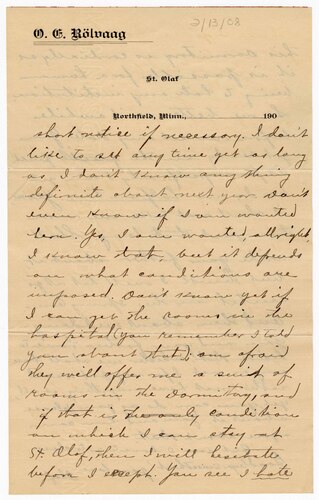 2/13/08
O. E. Rölvaag
St. Olaf
Northfield, Minn., 190
short notice if necessary. I don't
like to set any time yet as long
as I don't know anything
definite about next year. Don't
even know if I am wanted
here. Yes, I am wanted, allright,
I know that, but it depends
on what conditions are
imposed. Don't know yet if
I can get the rooms in the
hospital (you remember I told
you about that) am afraid
they will offer me a suit of
rooms in the dormitory, and
if that is the only condition
on which I can stay at
St. Olaf, then I will hesitate
before I except. You see I hate